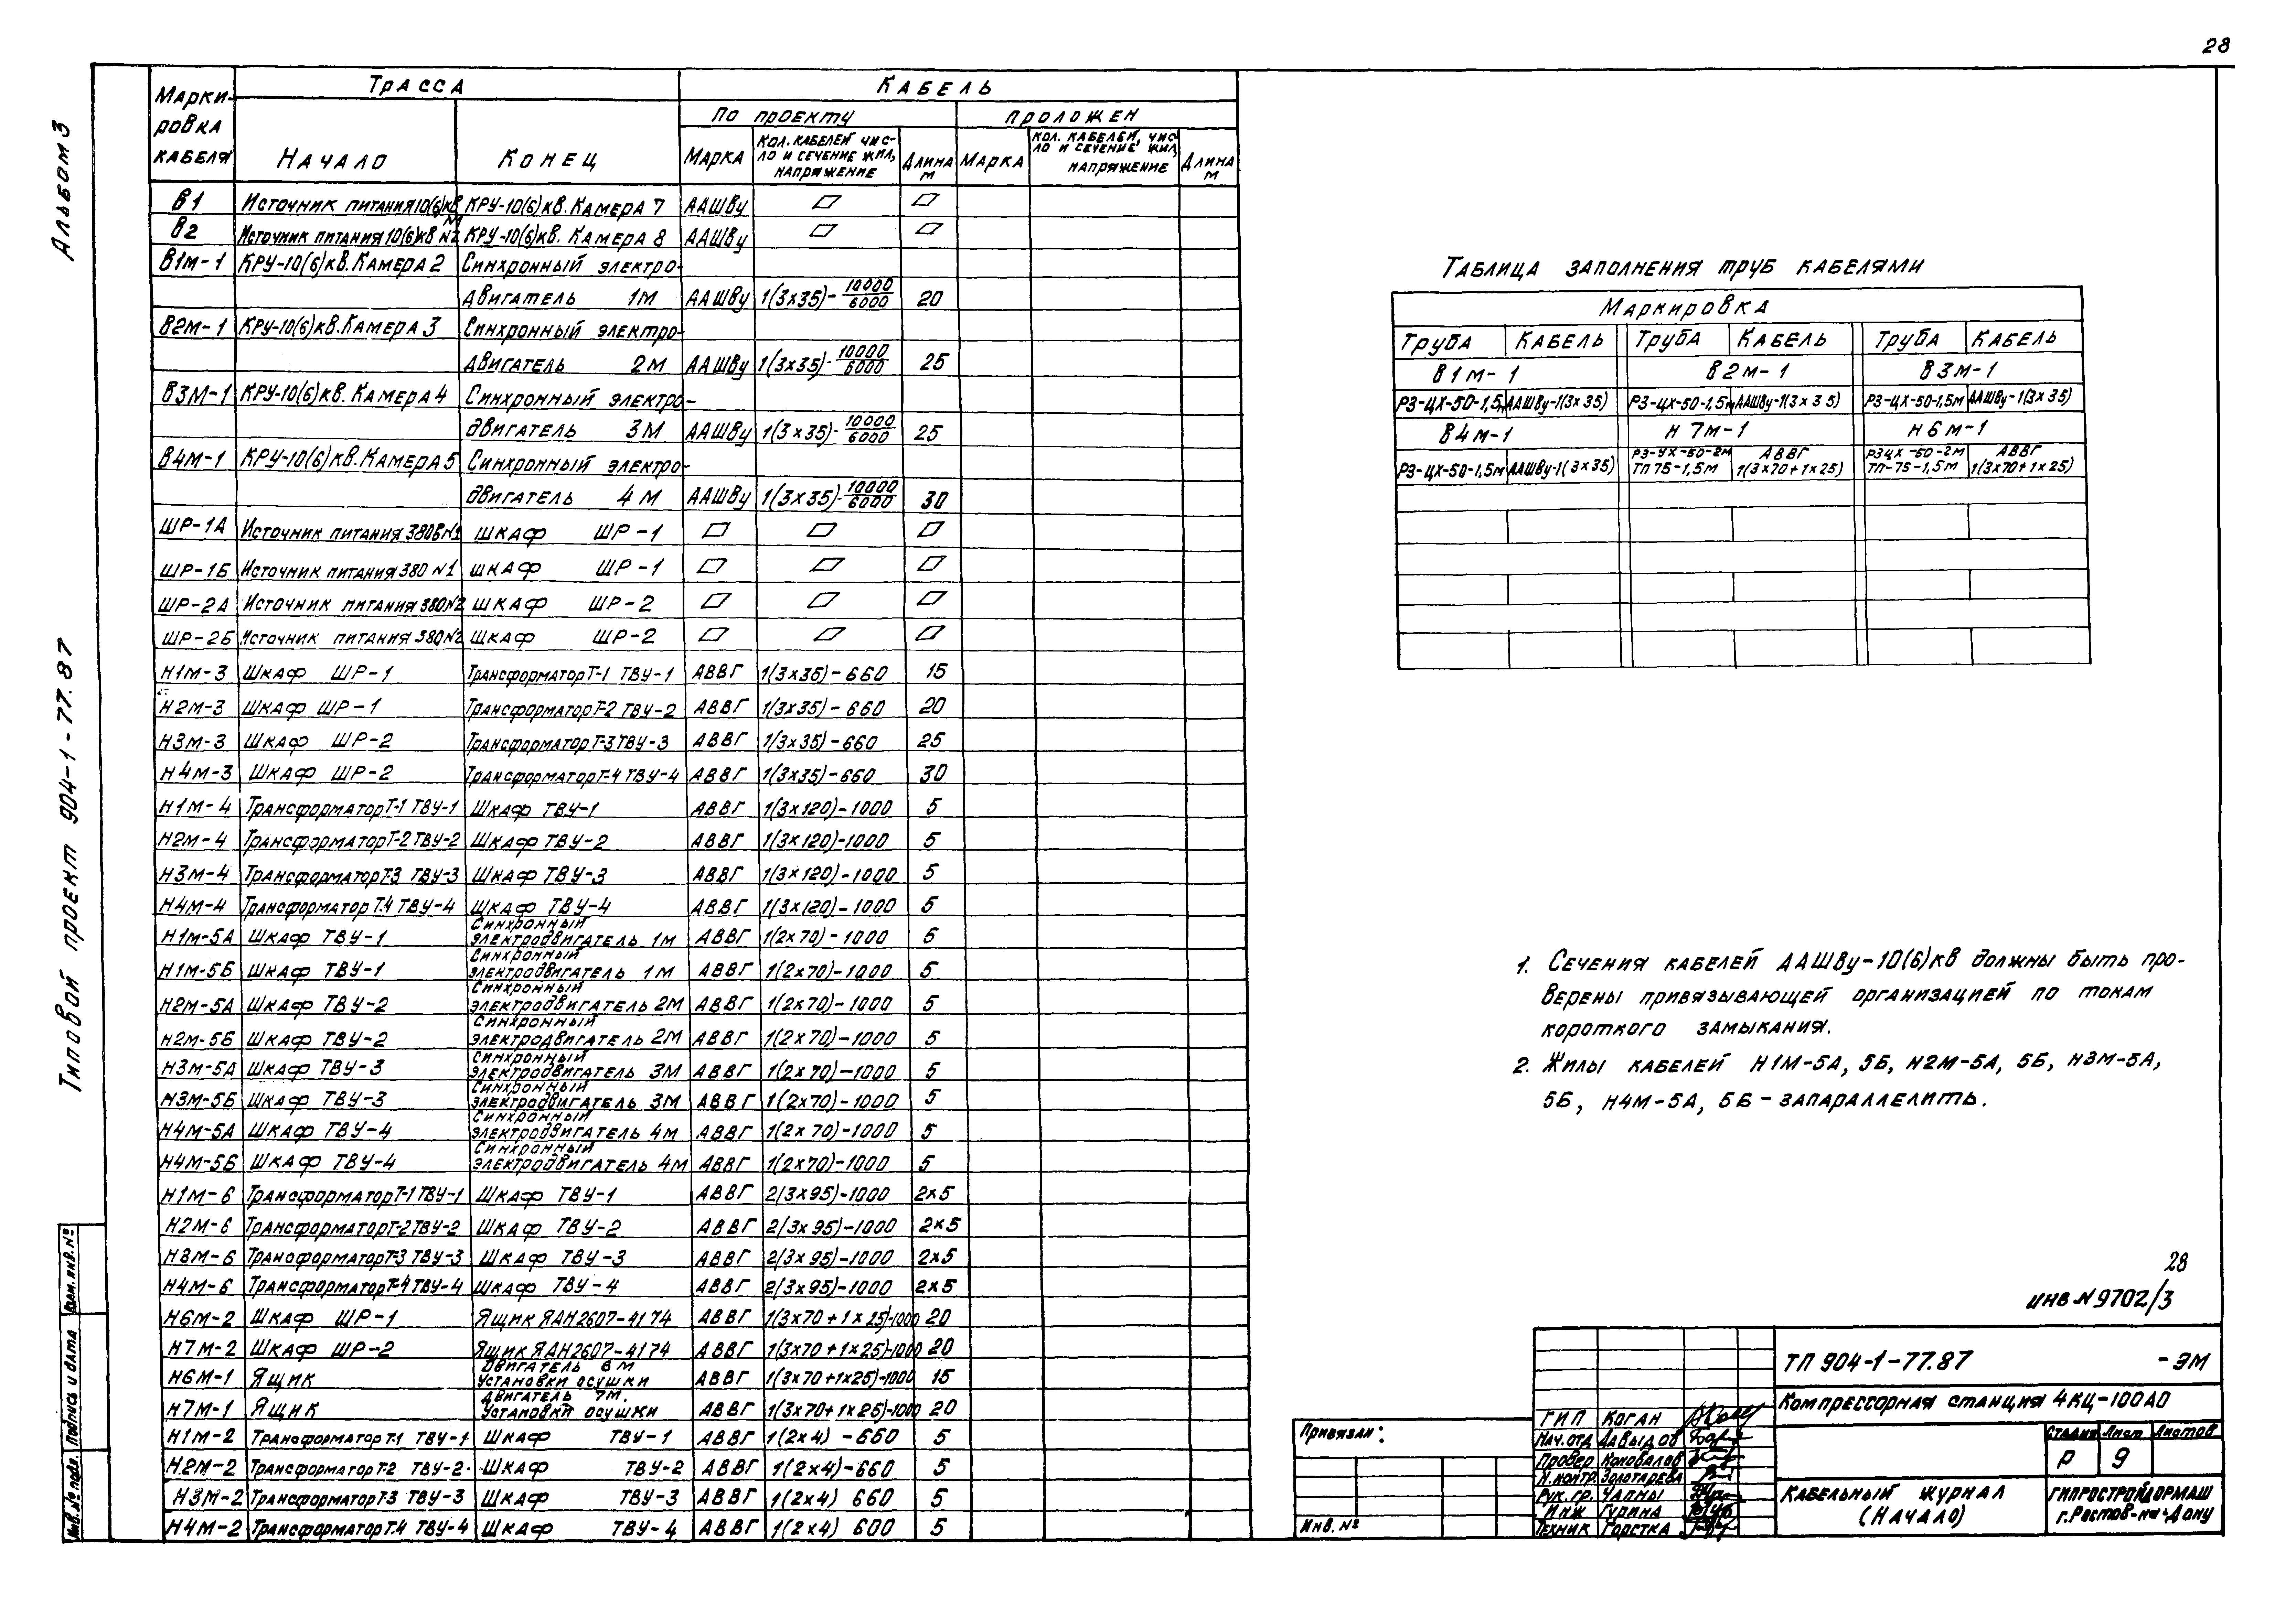 28
Альбом 3
Типовой проект 904-1-77.87
Взам. инв. №
Подпись и дата
Инв. № подл.
Маркировка кабеля
Трасса
Кабель
По проекту
Проложен
Начало
Конец
Марка
Кол. кабелей чис-
ло и сечение жил,
напряжение
Длина м
Марка
Кол. кабелей, чис-
ло и сечение жил,
напряжение
Длина м
В1 Источник питания 10(6)кВ №1 КРУ-10(6)кВ. Камера 7 ААШВу ▱ ▱
В2 Источник питания 10(6)кВ №2 КРУ-10(6)кВ. Камера 8 ААШВу ▱ ▱
В1М-1 КРУ-10(6)кВ. Камера 2 Синхронный электро-
двигатель 1М ААШВу 1(3х35)-10000/6000 20
В2М-1 КРУ-10(6)кВ. Камера 3 Синхронный электро-
двигатель 2М ААШВу 1(3х35)-10000/6000 25
В3М-1 КРУ-10(6)кВ. Камера 4 Синхронный электро-
двигатель 3М ААШВу 1(3х35)-10000/6000 25
В4М-1 КРУ-10(6)кВ. Камера 5 Синхронный электро-
двигатель 4М ААШВу 1(3х35)-10000/6000 30
ШР-1А Источник питания 380В №1 шкаф ШР-1 ▱ ▱ ▱
ШР-1Б Источник питания 380 №1 шкаф ШР-1 ▱ ▱ ▱
ШР-2А Источник питания 380 №2 шкаф ШР-2 ▱ ▱ ▱
ШР-2Б Источник питания 380 №2 шкаф ШР-2 ▱ ▱ ▱
Н1М-3 Шкаф ШР-1 Трансформатор Т-1 ТВУ-1 АВВГ 1(3х35)-660 15
Н2М-3 Шкаф ШР-1 Трансформатор Т-2 ТВУ-2 АВВГ 1(3х35)-660 20
Н3М-3 Шкаф ШР-2 Трансформатор Т-3 ТВУ-3 АВВГ 1(3х35)-660 25
Н4М-3 Шкаф ШР-2 Трансформатор Т-4 ТВУ-4 АВВГ 1(3х35)-660 30
Н1М-4 Трансформатор Т-1 ТВУ-1 Шкаф ТВУ-1 АВВГ 1(3х120)-1000 5
Н2М-4 Трансформатор Т-2 ТВУ-2 Шкаф ТВУ-2 АВВГ 1(3х120)-1000 5
Н3М-4 Трансформатор Т-3 ТВУ-3 Шкаф ТВУ-3 АВВГ 1(3х120)-1000 5
Н4М-4 Трансформатор Т.4 ТВУ-4 Шкаф ТВУ-4 АВВГ 1(3х120)-1000 5
Н1М-5А Шкаф ТВУ-1 Синхронный электродвигатель 1М АВВГ 1(2х70)-1000 5
Н1М-5Б Шкаф ТВУ-1 Синхронный электродвигатель 1М АВВГ 1(2х70)-1000 5
Н2М-5А Шкаф ТВУ-2 Синхронный электродвигатель 2М АВВГ 1(2х70)-1000 5
Н2М-5Б Шкаф ТВУ-2 Синхронный электродвигатель 2М АВВГ 1(2х70)-1000 5
Н3М-5А Шкаф ТВУ-3 Синхронный электродвигатель 3М АВВГ 1(2х70)-1000 5
Н3М-5Б Шкаф ТВУ-3 Синхронный электродвигатель 3М АВВГ 1(2х70)-1000 5
Н4М-5А Шкаф ТВУ-4 Синхронный электродвигатель 4М АВВГ 1(2х70)-1000 5
Н4М-5Б Шкаф ТВУ-4 Синхронный электродвигатель 4М АВВГ 1(2х70)-1000 5
Н1М-6 Трансформатор Т-1 ТВУ-1 Шкаф ТВУ-1 АВВГ 2(3х95)-1000 2х5
Н2М-6 Трансформатор Т-2 ТВУ-2 Шкаф ТВУ-2 АВВГ 2(3х95)-1000 2х5
Н3М-6 Трансформатор Т-3 ТВУ-3 Шкаф ТВУ-3 АВВГ 2(3х95)-1000 2х5
Н4М-6 Трансформатор Т-4 ТВУ-4 Шкаф ТВУ-4 АВВГ 2(3х95)-1000 2х5
Н6М-2 Шкаф ШР-1 Ящик ЯАН2607-4174 АВВГ 1(3х70+1х25)-1000 20
Н7М-2 Шкаф ШР-2 Ящик ЯАН2607-4174 АВВГ 1(3х70+1х25)-1000 20
Н6М-1 Ящик Двигатель 6М установки осушки АВВГ 1(3х70+1х25)-1000 15
Н7М-1 Ящик Двигатель 7М. установки осушки АВВГ 1(3х70+1х25)-1000 20
Н1М-2 Трансформатор Т-1 ТВУ-1 Шкаф ТВУ-1 АВВГ 1(2х4)-660 5
Н2М-2 Трансформатор Т-2 ТВУ-2 Шкаф ТВУ-2 АВВГ 1(2х4)-660 5
Н3М-2 Трансформатор Т-3 ТВУ-3 Шкаф ТВУ-3 АВВГ 1(2х4) 660 5
Н4М-2 Трансформатор Т.4 ТВУ-4 Шкаф ТВУ-4 АВВГ 1(2х4) 600 5
Таблица заполнения труб кабелями
Маркировка
Труба Кабель Труба Кабель Труба Кабель
В1М-1 В2М-1 В3М-1
РЗ-ЦХ-50-1,5м ААШВу-1(3х35) РЗ-ЦХ-50-1,5м ААШВу-1(3х35) РЗ-ЦХ-50-1,5м ААШВу-1(3х35)
В4М-1 Н7М-1 Н6М-1
РЗ-ЦХ-50-1,5м ААШВу-1(3х35) РЗ-УХ-50-2м ТП 75-1,5м АВВГ 1(3х70+1х25) РЗЦХ-50-2м ТП-75-1,5м АВВГ 1(3х70+1х25)
1. Сечения кабелей ААШВу-10(6)кВ должны быть про-
верены привязывающей организацией по токам
короткого замыкания.
2. Жилы кабелей Н1М-5А, 5Б, Н2М-5А, 5Б, Н3М-5А,
5Б, Н4М-5А, 5Б-запараллелить.
28
инв N 9702/3
ТП 904-1-77.87 -ЭМ
Компрессорная станция 4КЦ-100АО
Стадия Лист Листов
Р 9
Кабельный журнал
(Начало)
ГИПРОСТРОЙДОРМАШ
г.Ростов-на-Дону
ГИП Коган
Нач.отд Давыдов
Провер Коновалов
Н.контр. Золотарева
Рук.гр. Чапны
Инж Гурина
Техник Горстка
Привязан:
Инв. №